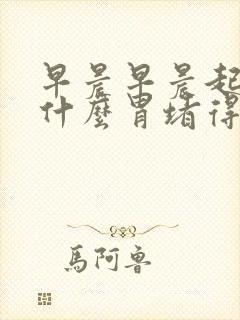 早晨早晨起
什麼胃堵得
馬阿魯